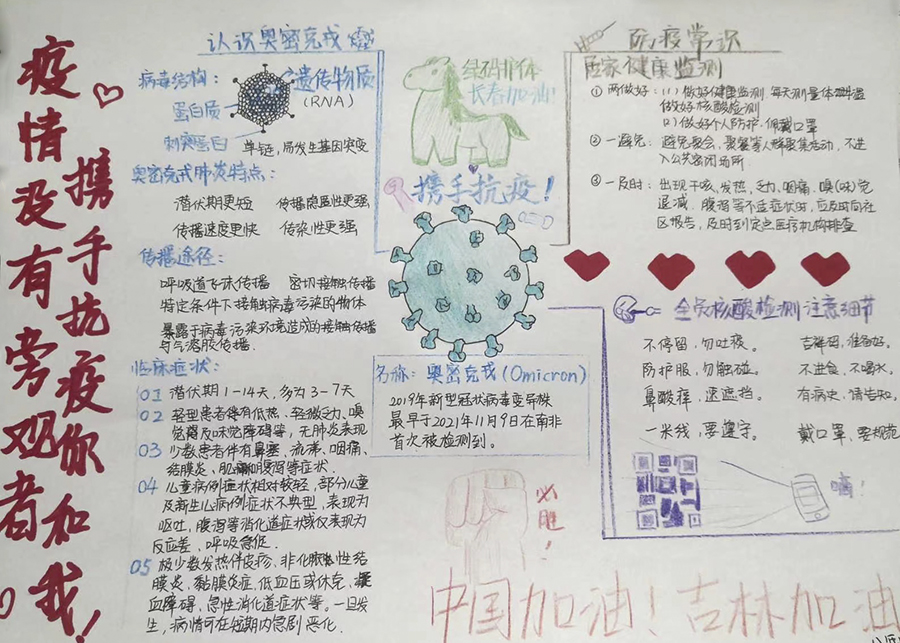 疫情没有旁观者
携手抗疫你和我！
认识奥密克戎
病毒结构：
遗传物质
(RNA)
蛋白质
刺突蛋白
单链，易发生基因突变
奥密克戎肺炎特点：
潜伏期更短 传播隐匿性更强
传播速度更快 传染性更强
传播途径：
呼吸道飞沫传播 密切接触传播
特定条件下接触病毒污染的物体
暴露于病毒污染环境造成的接触传播
与气溶胶传播．
临床症状：
01 潜伏期1-14天，多为3-7天
02 轻型患者稀有低热、轻微乏力、嗅
觉及味觉障碍等，无肺炎表现
03 少数患者伴有鼻塞、流涕、咽痛、
结膜炎、肌痛和腹泻等症状．
04 儿童病例症状相对较轻，部分儿童
及新生儿病例症状不典型，表现为
呕吐，腹泻等消化道症状或仅表现为
反应差、呼吸急促．
05 极少数发热伴皮疹，非化脓性结
膜炎、黏膜炎症，低血压或休克，凝
血障碍，急性消化道症状等。一旦发
生，病情可在短期内急剧恶化．
绿码排体
长春加油！
携手抗疫！
名称：奥密克戎(Omicron)
2019年新型冠状病毒变异株
最早于2021年11月9日在南非
首次被检测到。
必胜！
防疫常识
居家健康监测
① 两做好：(1) 做好健康监测，每天测量体温
做好核酸检测
2) 做好个人防护，佩戴口罩
② 一避免：避免聚会、聚餐等人群聚集活动，不进
入公共密闭场所．
③ 一及时：出现干咳、发热，乏力、咽痛、嗅(味)觉
退减、腹泻等不适症状时，应及时向社
区报告，及时到定点医疗机构排查
全员核酸检测注意细节
不停留，勿吐痰。 吉祥码，准备好。
防护服，勿触碰。 不进食，不喝水。
鼻酸痒，速遮挡。 有病史，请告知。
一米线，要遵守。 戴口罩，要规范
嘀！
中国加油！吉林加油